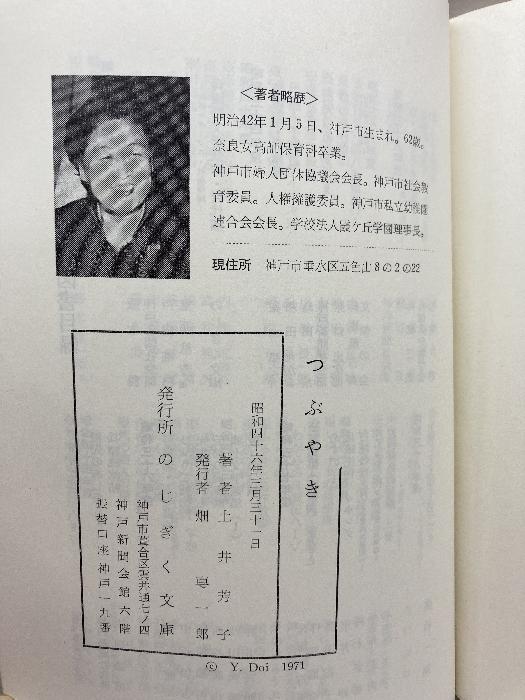 〈著者略歴〉
明治42年1月5日、神戸市生まれ。62歳。
奈良女高師保育科卒業。
神戸市婦人団体協議会会長。神戸市社会教
育委員。人権擁護委員。神戸市私立幼稚園
連合会会長。学校法人霞ケ丘学園理事長。
現住所 神戸市垂水区五色山8の2の22
つぶやき
昭和四十六年三月三十一日
著者 土井芳子
発行者 畑専一郎
発行所 のじぎく文庫
神戸市葺合区雲井通七ノ四
神戸新聞会館六階
振替口座神戸一九番
© Y. Doi 1971